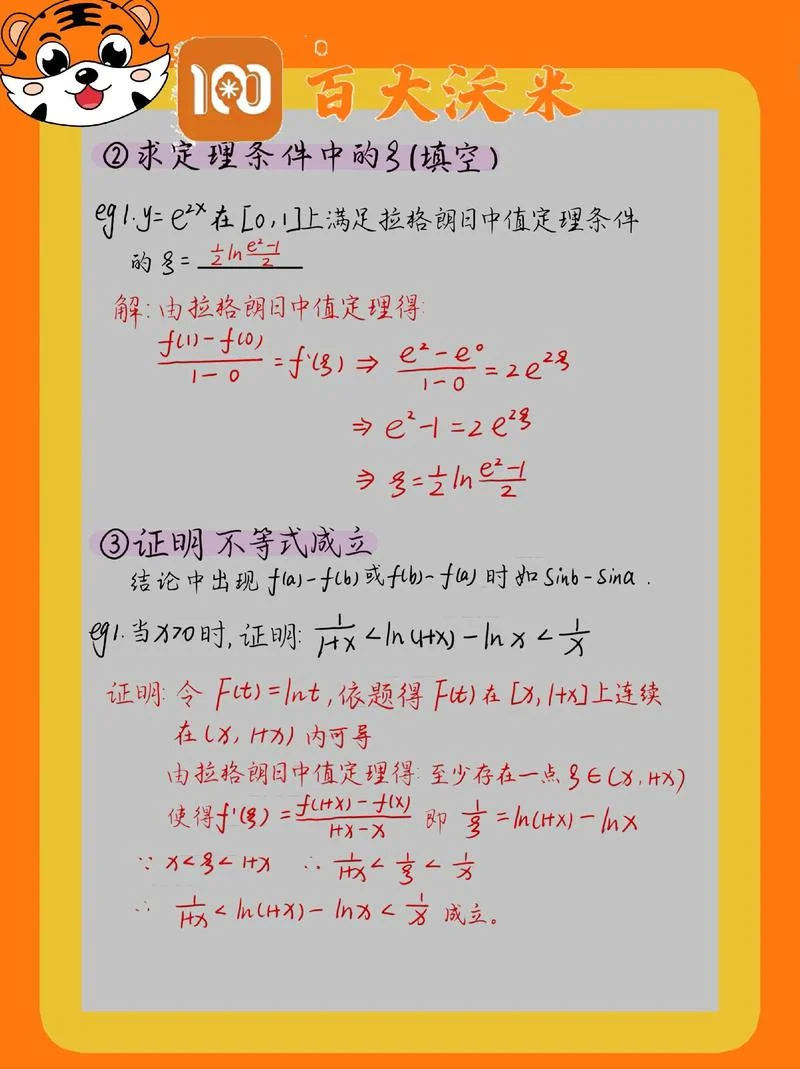 王
100
百大沃米
②求定理条件中的ξ(填空)
eg1.y=e^{2x}在[0,1]上满足拉格朗日中值定理条件
的ξ= 1/2 ln (e²-1)/2
解:由拉格朗日中值定理得:
(f(1)-f(0))/(1-0) = f'(ξ) ⇒ (e²-e⁰)/(1-0) = 2e^{2ξ}
⇒ e²-1=2e^{2ξ}
⇒ ξ=1/2 ln (e²-1)/2
③证明不等式成立
结论中出现f(a)-f(b)或f(b)-f(a)时如sinb-sina.
eg1.当x>0时,证明: 1/(1+x) < ln(1+x)-lnx < 1/x
证明:令 F(t)=lnt,依题得F(t)在[x,1+x]上连续
在(x,1+x)内可导
由拉格朗日中值定理得:至少存在一点ξ∈(x,1+x)
使得f'(ξ)=(f(1+x)-f(x))/(1+x-x) 即 1/ξ=ln(1+x)-lnx
∵ x<ξ<1+x ∴ 1/(1+x) < 1/ξ < 1/x
∴ 1/(1+x) < ln(1+x)-lnx < 1/x 成立。